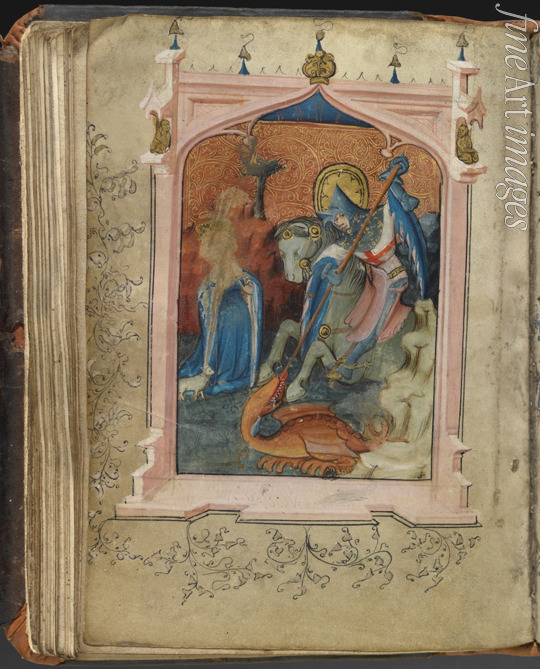 fine Art images